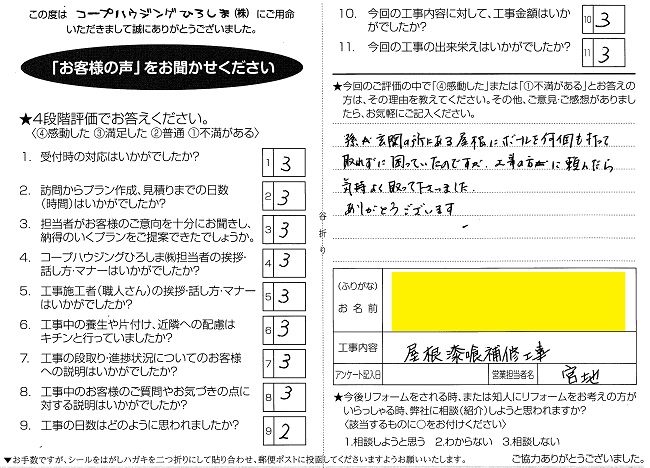 この度は コープハウジングひろしま(株) にご用命
いただきまして誠にありがとうございました。
「お客様の声」をお聞かせください
★4段階評価でお答えください。
〈④感動した ③満足した ②普通 ①不満がある〉
1. 受付時の対応はいかがでしたか?
1 3
2. 訪問からプラン作成、見積りまでの日数
(時間)はいかがでしたか?
2 3
3. 担当者がお客様のご意向を十分にお聞きし、
納得のいくプランをご提案できたでしょうか。
3 3
4. コープハウジングひろしま㈱担当者の挨拶・
話し方・マナーはいかがでしたか?
4 3
5. 工事施工者(職人さん)の挨拶・話し方・マナー
はいかがでしたか?
5 3
6. 工事中の養生や片付け、近隣への配慮は
キチンと行っていましたか?
6 3
7. 工事の段取り・進捗状況についてのお客様
への説明はいかがでしたか?
7 3
8. 工事中のお客様のご質問やお気づきの点に
対する説明はいかがでしたか?
8 3
9. 工事の日数はどのように思われましたか?
9 2
▼お手数ですが、シールをはがしハガキを二つ折りにして貼り合わせ、郵便ポストに投函してくださいますようお願いいたします。
谷折り
10. 今回の工事内容に対して、工事金額はいか
がでしたか?
10 3
11. 今回の工事の出来栄えはいかがでしたか?
11 3
★今回のご評価の中で「④感動した」または「①不満がある」とお答えの
方は、その理由を教えてください。その他、ご意見・ご感想がありました
ら、お気軽にご記入ください。
孫が玄関の所にある屋根にボールを何個も打って
取れずに困っていたのですが、工事の方に頼んだら
気持よく取って下さいました。
ありがとうございます
(ふりがな)
お名前
工事内容
屋根漆喰補修工事
アンケート記入日
営業担当者名
宮地
★今後リフォームをされる時、または知人にリフォームをお考えの方が
いらっしゃる時、弊社に相談(紹介)しようと思われますか?
〈該当するものに○をお付けください〉
1.相談しようと思う 2.わからない 3.相談しない
ご協力ありがとうございました。